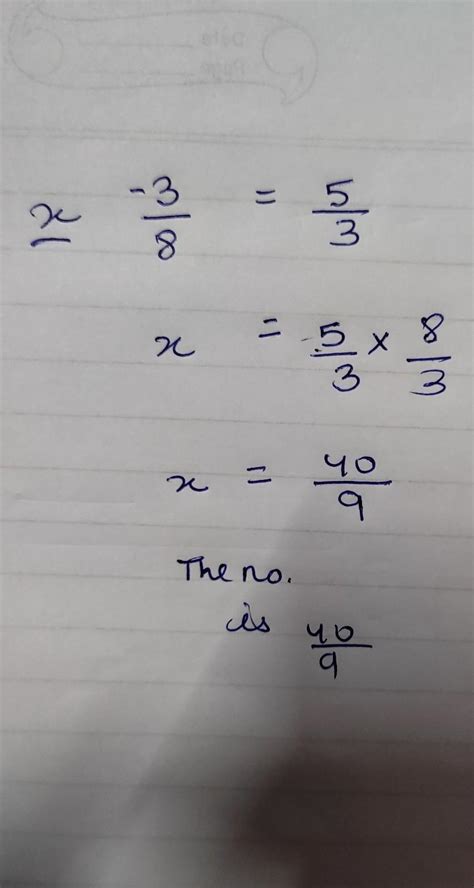 Date
Page
x -3/8 = 5/3
x = -5/3 × 8/3
x = 40/9
The no.
is 40/9